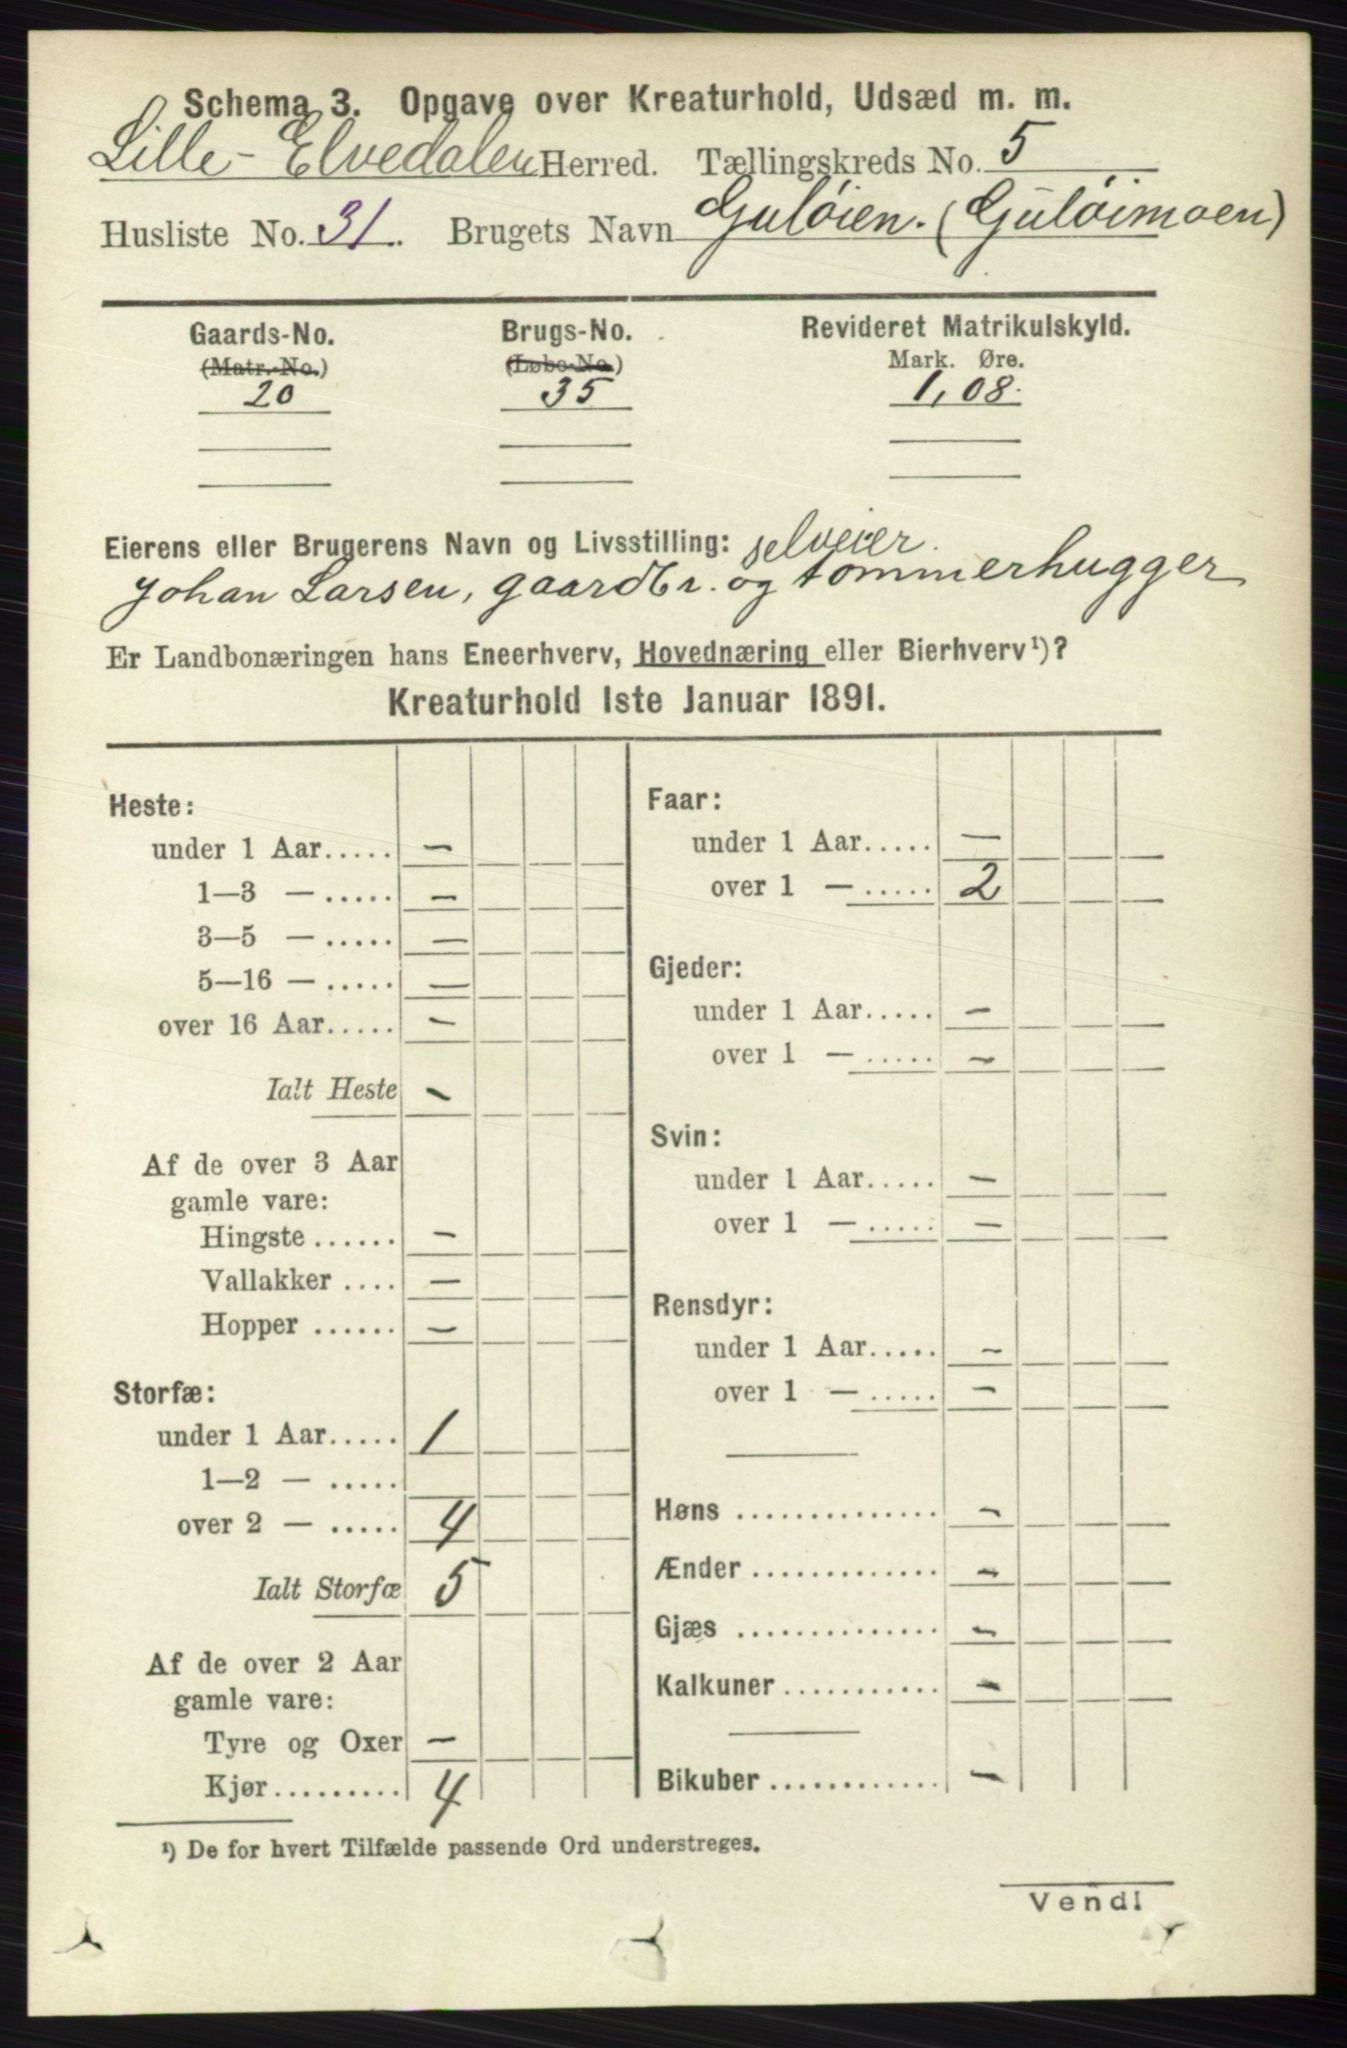 Schema 3. Opgave over Kreaturhold, Udsæd m. m.
Lille-Elvedalen Herred. Tællingskreds No. 5
Husliste No. 31. Brugets Navn Guløien. (Guløimoen)
Gaards-No. Brugs-No. Revideret Matrikulskyld.
(Matr.-No.) (Løbe-No.) Mark. Øre.
20 35 1,08.
Eierens eller Brugerens Navn og Livsstilling: selveier.
Johan Larsen, gaardbr. og tømmerhugger
Er Landbonæringen hans Eneerhverv, Hovednæring eller Bierhverv¹)?
Kreaturhold 1ste Januar 1891.
Heste:
under 1 Aar..... –
1—3 — ..... –
3—5 — ..... –
5—16 — ..... –
over 16 Aar..... –
Ialt Heste –
Af de over 3 Aar
gamle vare:
Hingste ...... –
Vallakker .... –
Hopper ...... –
Storfæ:
under 1 Aar..... 1
1—2 — .....
over 2 — ..... 4
Ialt Storfæ 5
Af de over 2 Aar
gamle vare:
Tyre og Oxer –
Kjør.......... 4
Faar:
under 1 Aar..... –
over 1 — ..... 2
Gjeder:
under 1 Aar..... –
over 1 — ..... –
Svin:
under 1 Aar..... –
over 1 — ..... –
Rensdyr:
under 1 Aar..... –
over 1 — ..... –
Høns .............. –
Ænder ............. –
Gjæs .............. –
Kalkuner ........... –
Bikuber ............ –
¹) De for hvert Tilfælde passende Ord understreges.
Vend!